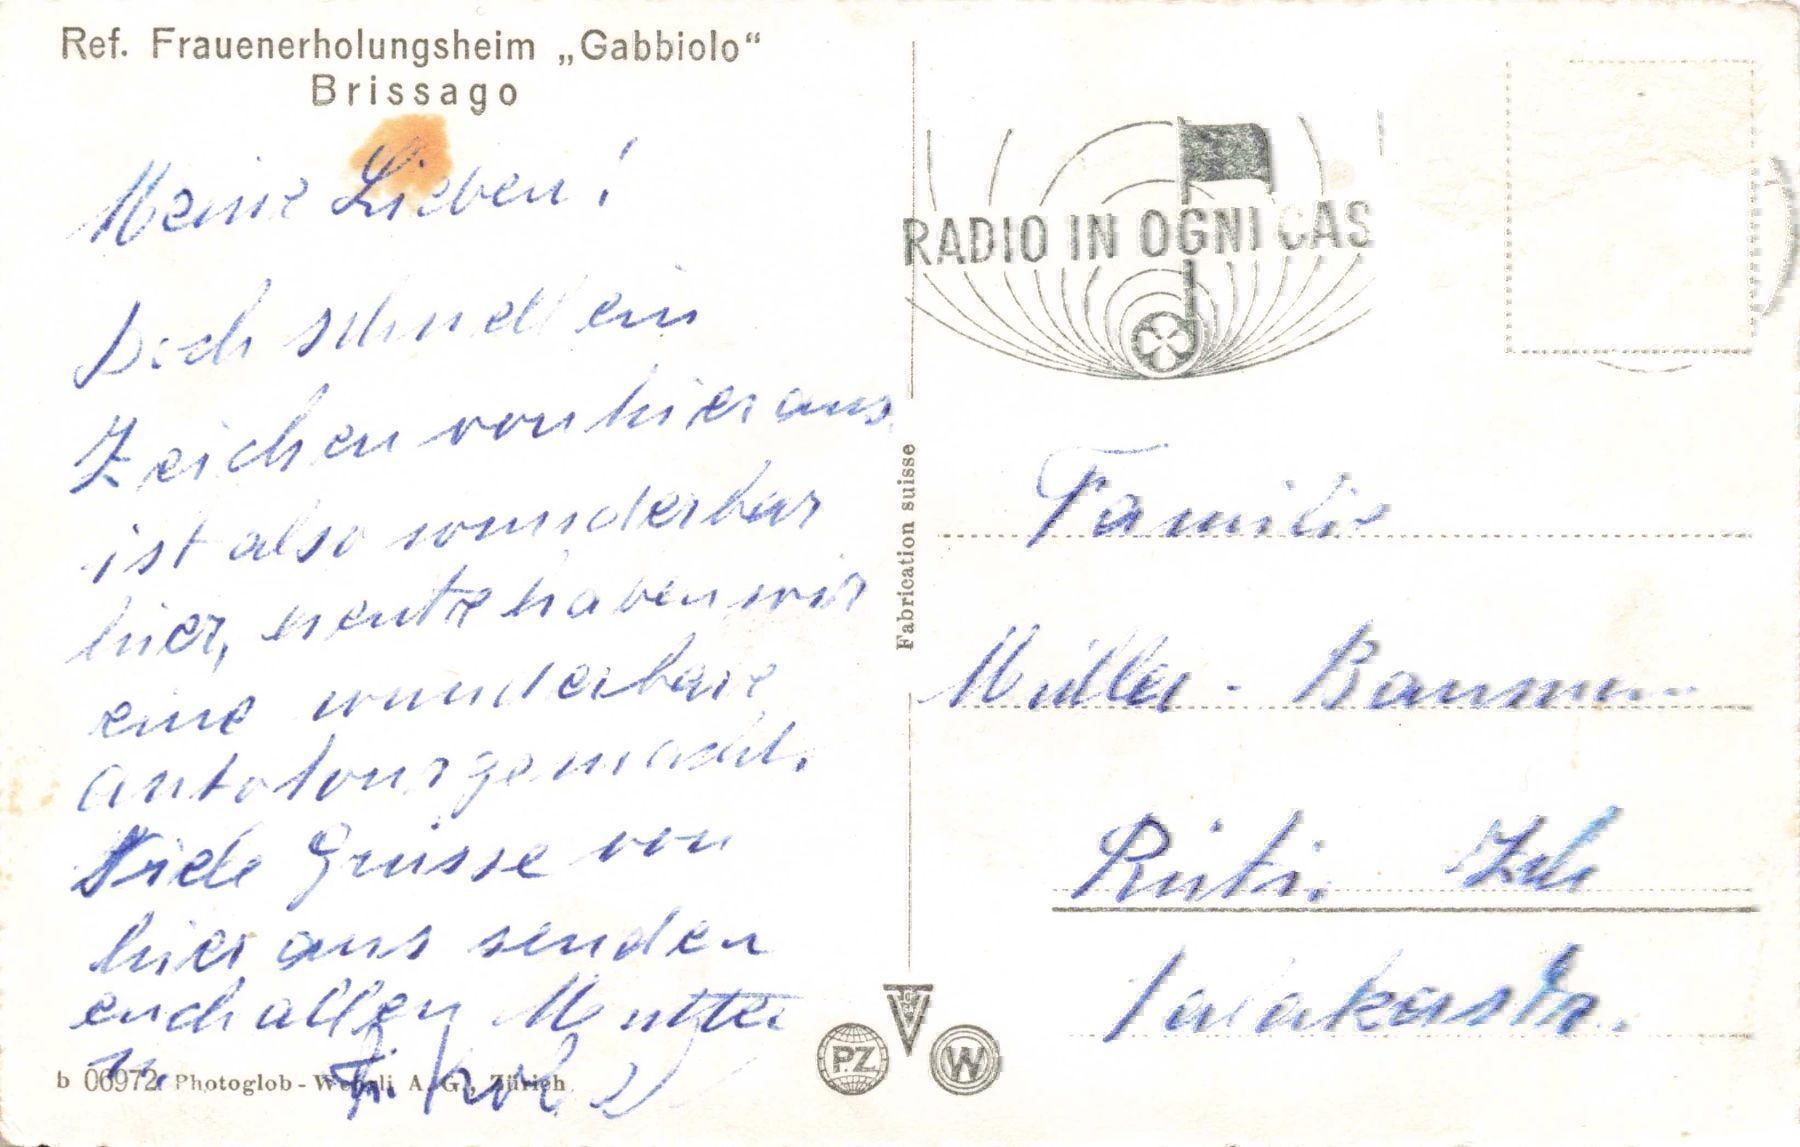 Ref. Frauenerholungsheim „Gabbiolo“
Brissago
Meine Lieben!
Doch schnell ein
Zeichen von hier aus.
ist also wunderbar
hier, heute haben wir
eine wunderbare
Autotour gemacht.
Viele Grüsse von
hier aus senden
euch allen Mutter
b 06972 Photoglob-Wehrli A. G., Zürich
Fabrication suisse
RADIO IN OGNI CAS
Familie
Müller-
Rüti. Zch
P.Z.
W